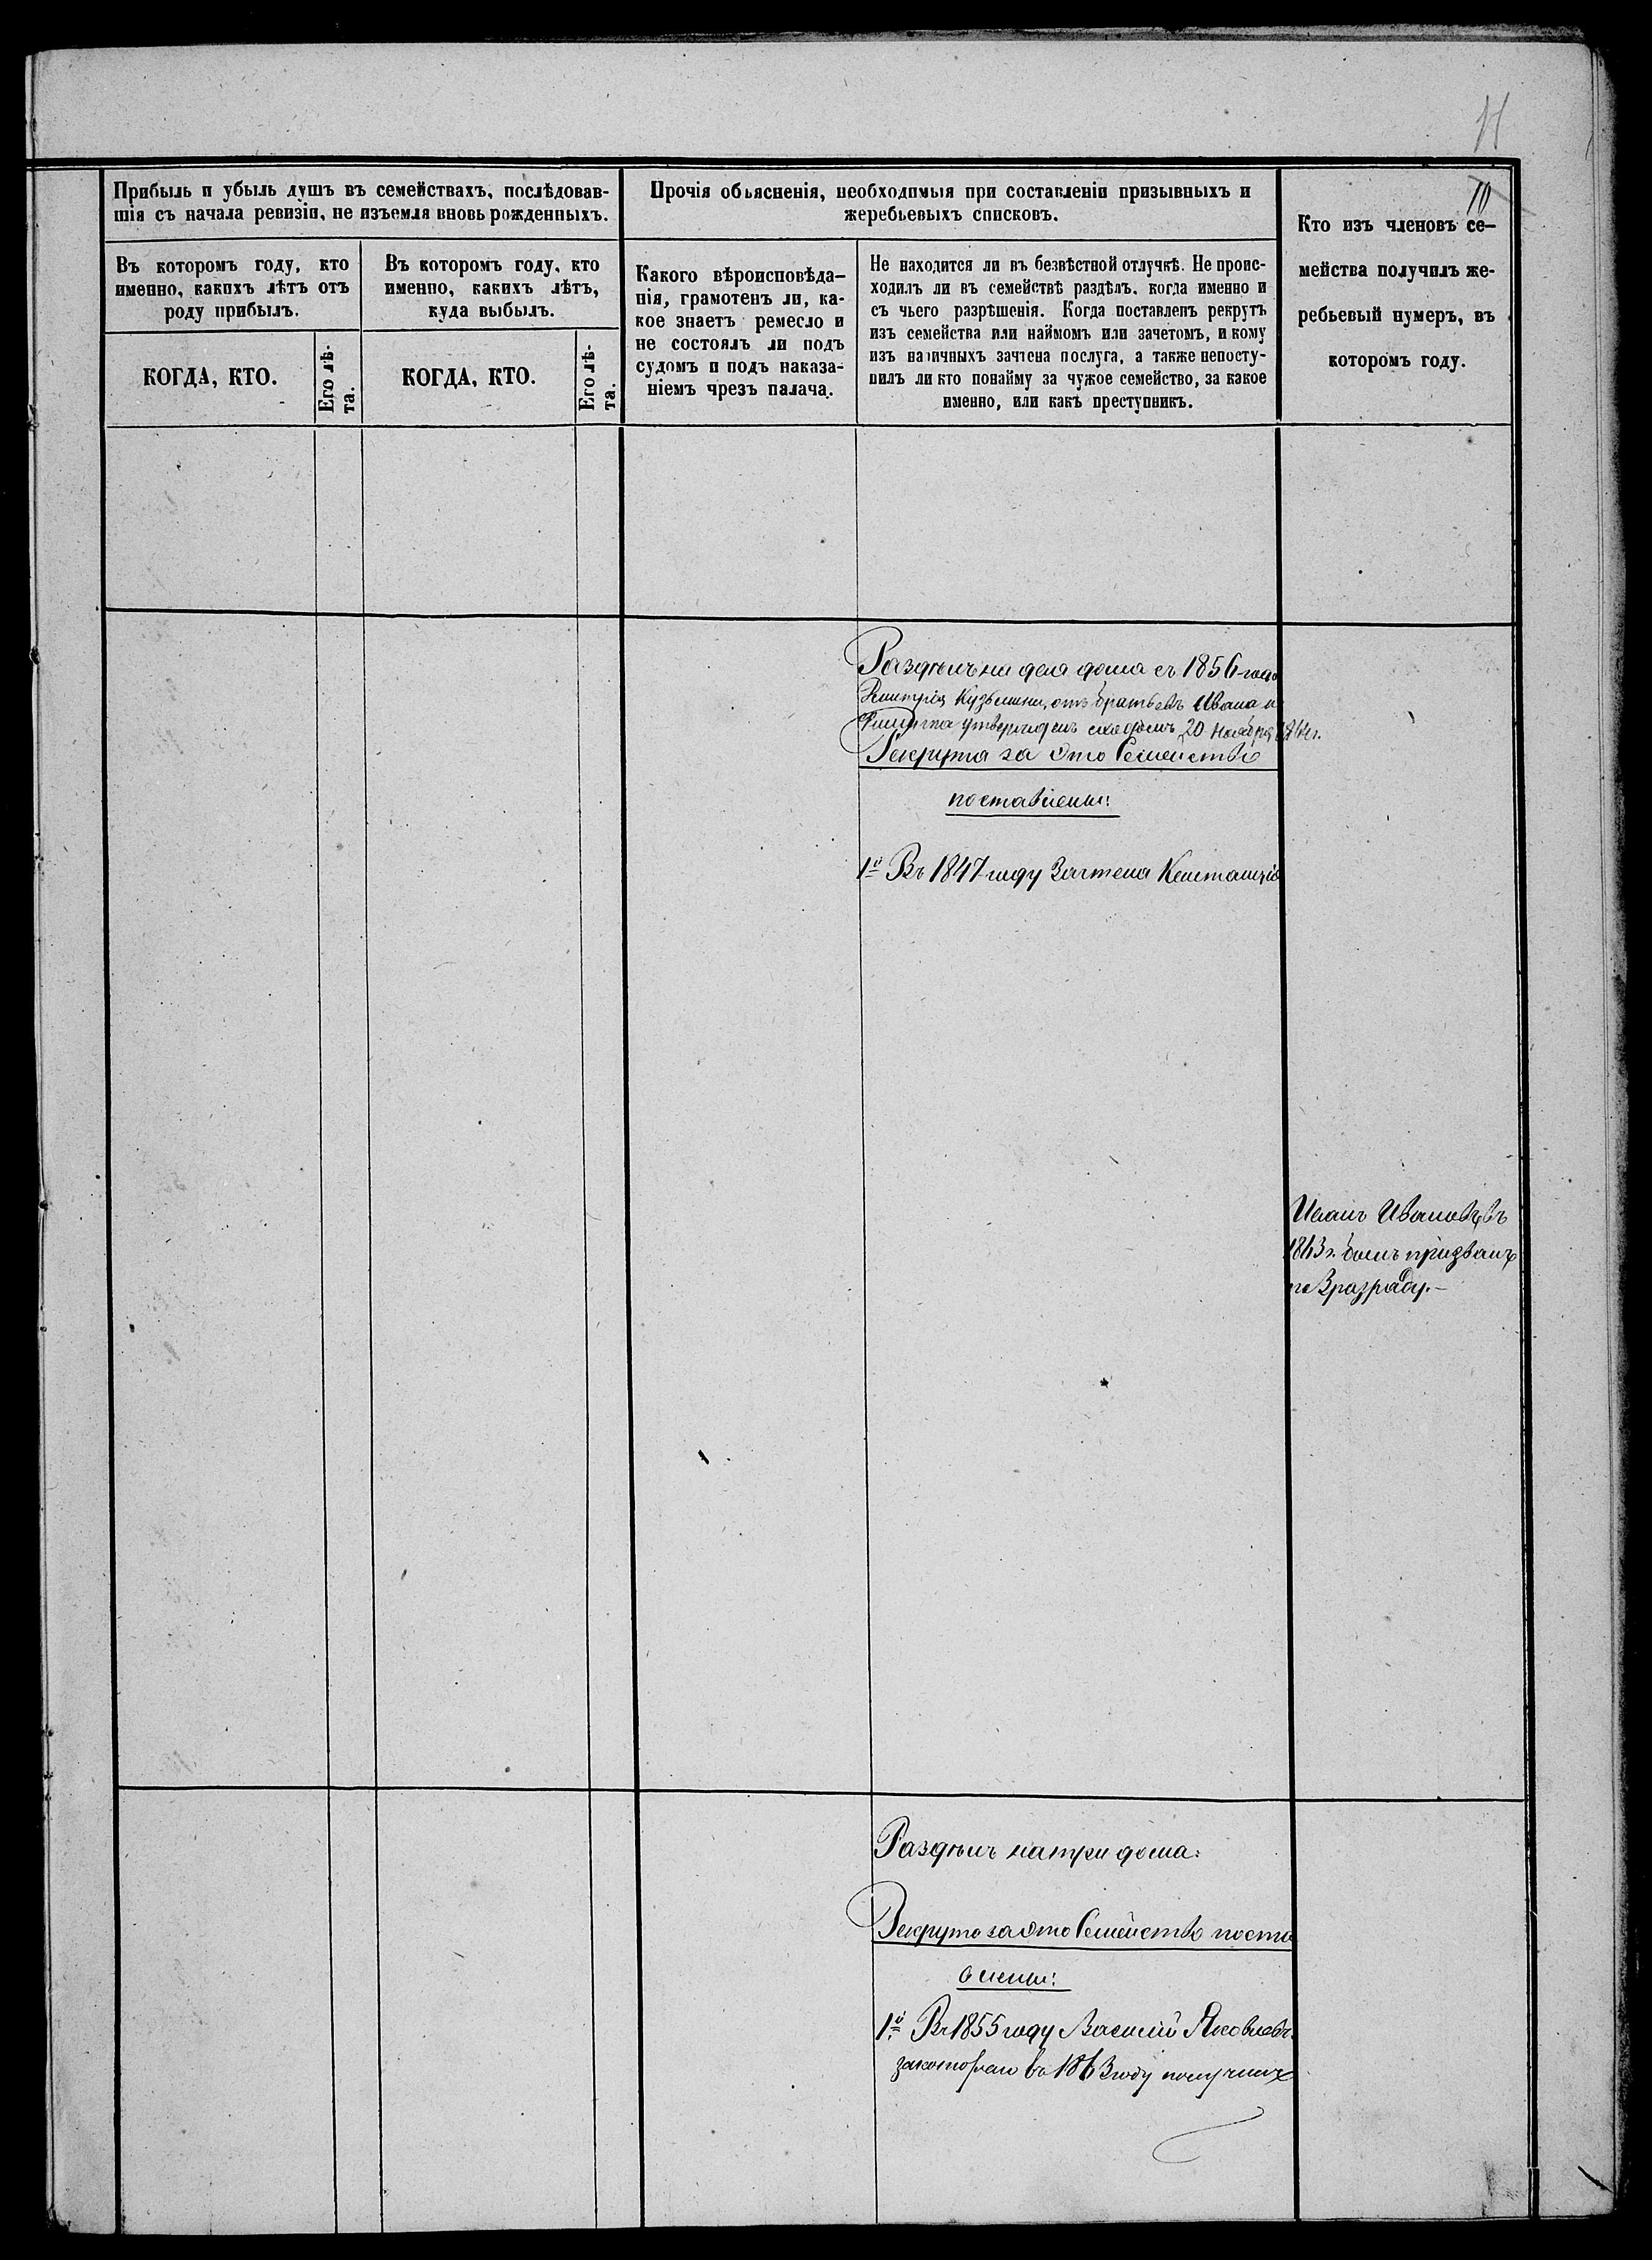 11
10
Прибыль и убыль душъ въ семействахъ, послѣдовав-
шія съ начала ревизіи, не изъемля вновь рожденныхъ.
Въ которомъ году, кто
именно, какихъ лѣтъ отъ
роду прибылъ.
КОГДА, КТО.
Его лѣ-
та.
Въ которомъ году, кто
именно, какихъ лѣтъ,
куда выбылъ.
КОГДА, КТО.
Его лѣ-
та.
Прочія объясненія, необходимыя при составленіи призывныхъ и
жеребьевыхъ списковъ.
Какого вѣроисповѣда-
нія, грамотенъ ли, ка-
кое знаетъ ремесло и
не состоялъ ли подъ
судомъ и подъ наказа-
ніемъ чрезъ палача.
Не находится ли въ безвѣстной отлучкѣ. Не проис-
ходилъ ли въ семействѣ раздѣлъ, когда именно и
съ чьего разрѣшенія. Когда поставленъ рекрутъ
изъ семейства или наймомъ или зачетомъ, и кому
изъ наличныхъ зачтена послуга, а также непосту-
пилъ ли кто понайму за чужое семейство, за какое
именно, или какъ преступникъ.
Кто изъ членовъ се-
мейства получилъ же-
ребьевый нумеръ, въ
которомъ году.
Раздѣлъ на два дома съ 1856 года
Дмитрія Кузьмина, отъ братьевъ Ивана и
Филиппа утвержденъ сходомъ 20 Ноября
Рекрута за это Семейство
поставлены:
1й Въ 1847 году Зачтена Квитанція
Иванъ Ивановъ въ
1863 г. былъ призванъ
по 3 разряду.-
Раздѣлъ на три дома:
Рекрута за это Семейство поста
влены:
1й Въ 1855 году Василій Яковлевъ
за которого въ 1863 году получилъ